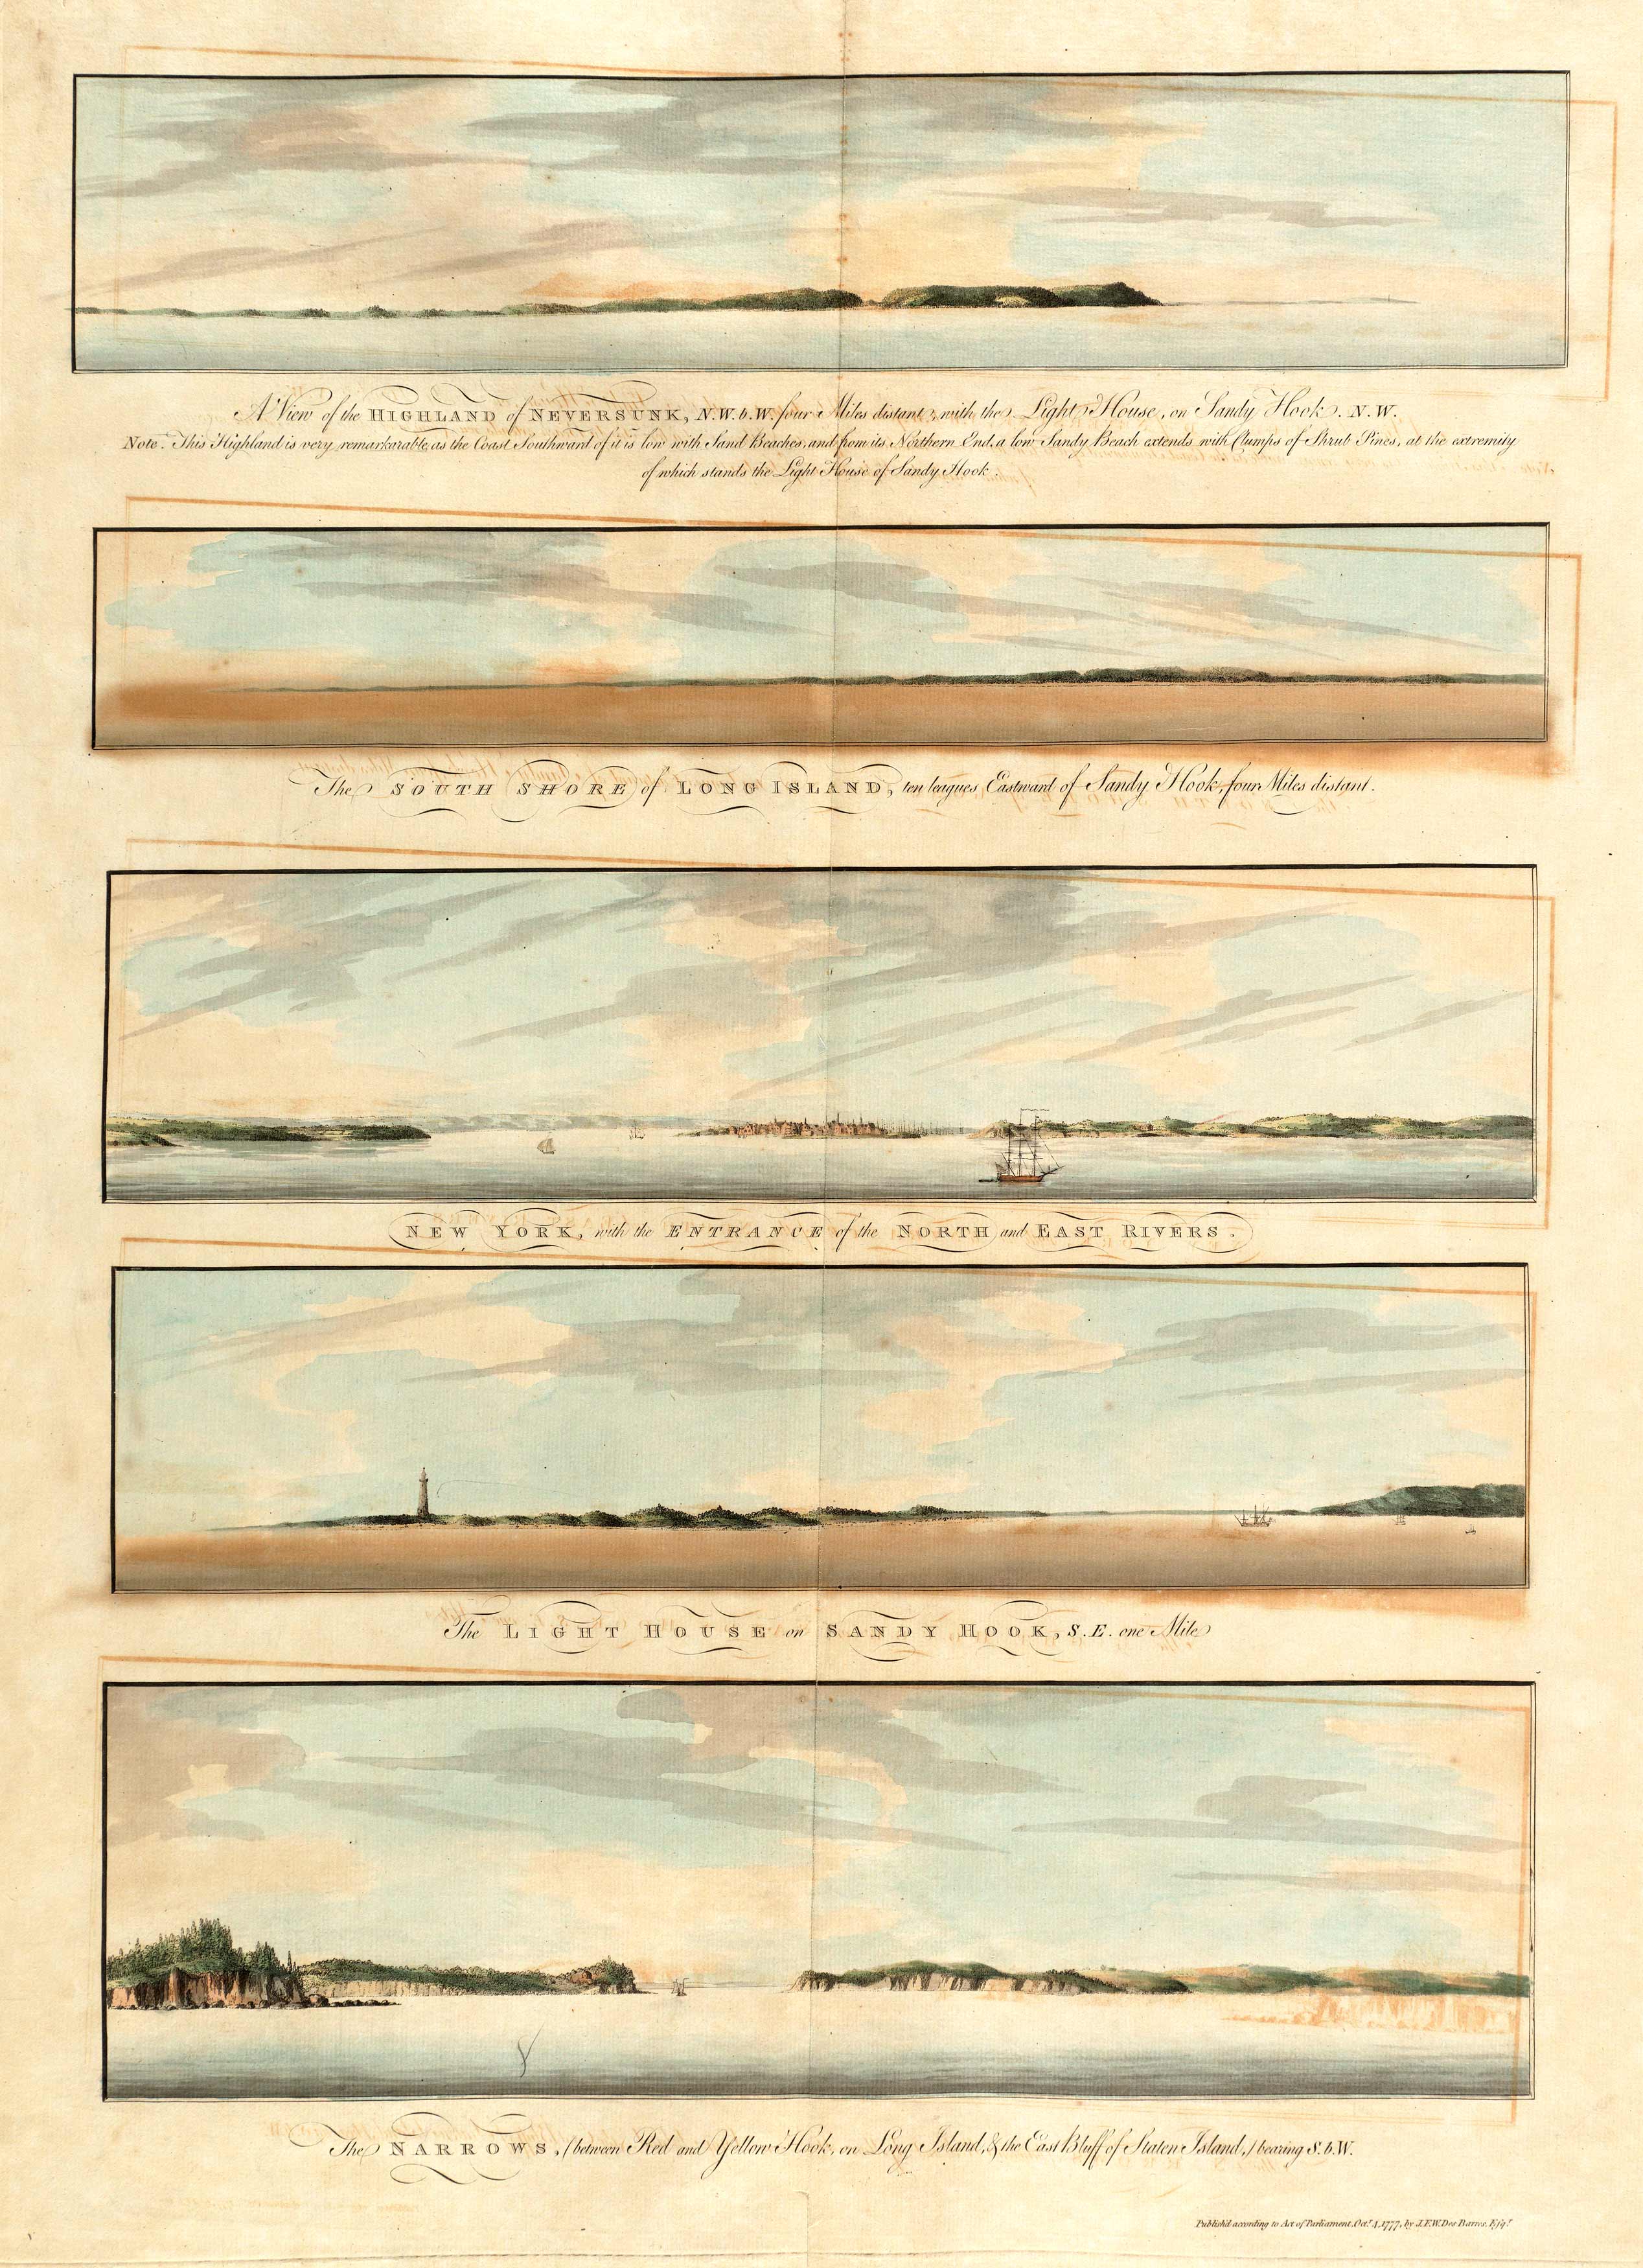 A View of the HIGHLAND of NEVERSUNK, N.W.b.W. four Miles distant, with the Light House, on Sandy Hook. N.W.
Note. This Highland is very remarkarable, as the Coast Southward of it is low with Sand Beaches, and from its Northern End, a low Sandy Beach extends with Clumps of Shrub Pines, at the extremity
of which stands the Light House of Sandy Hook.
The SOUTH SHORE of LONG ISLAND, ten leagues Eastward of Sandy Hook, four Miles distant.
NEW YORK, with the ENTRANCE of the NORTH and EAST RIVERS.
The LIGHT HOUSE on SANDY HOOK, S.E. one Mile
The NARROWS, (between Red and Yellow Hook, on Long Island, & the East Bluff of Staten Island,) bearing S.b.W.
Publish'd according to Act of Parliament, Oct.r 4, 1777, by J.F.W. Des Barres, Esq.r